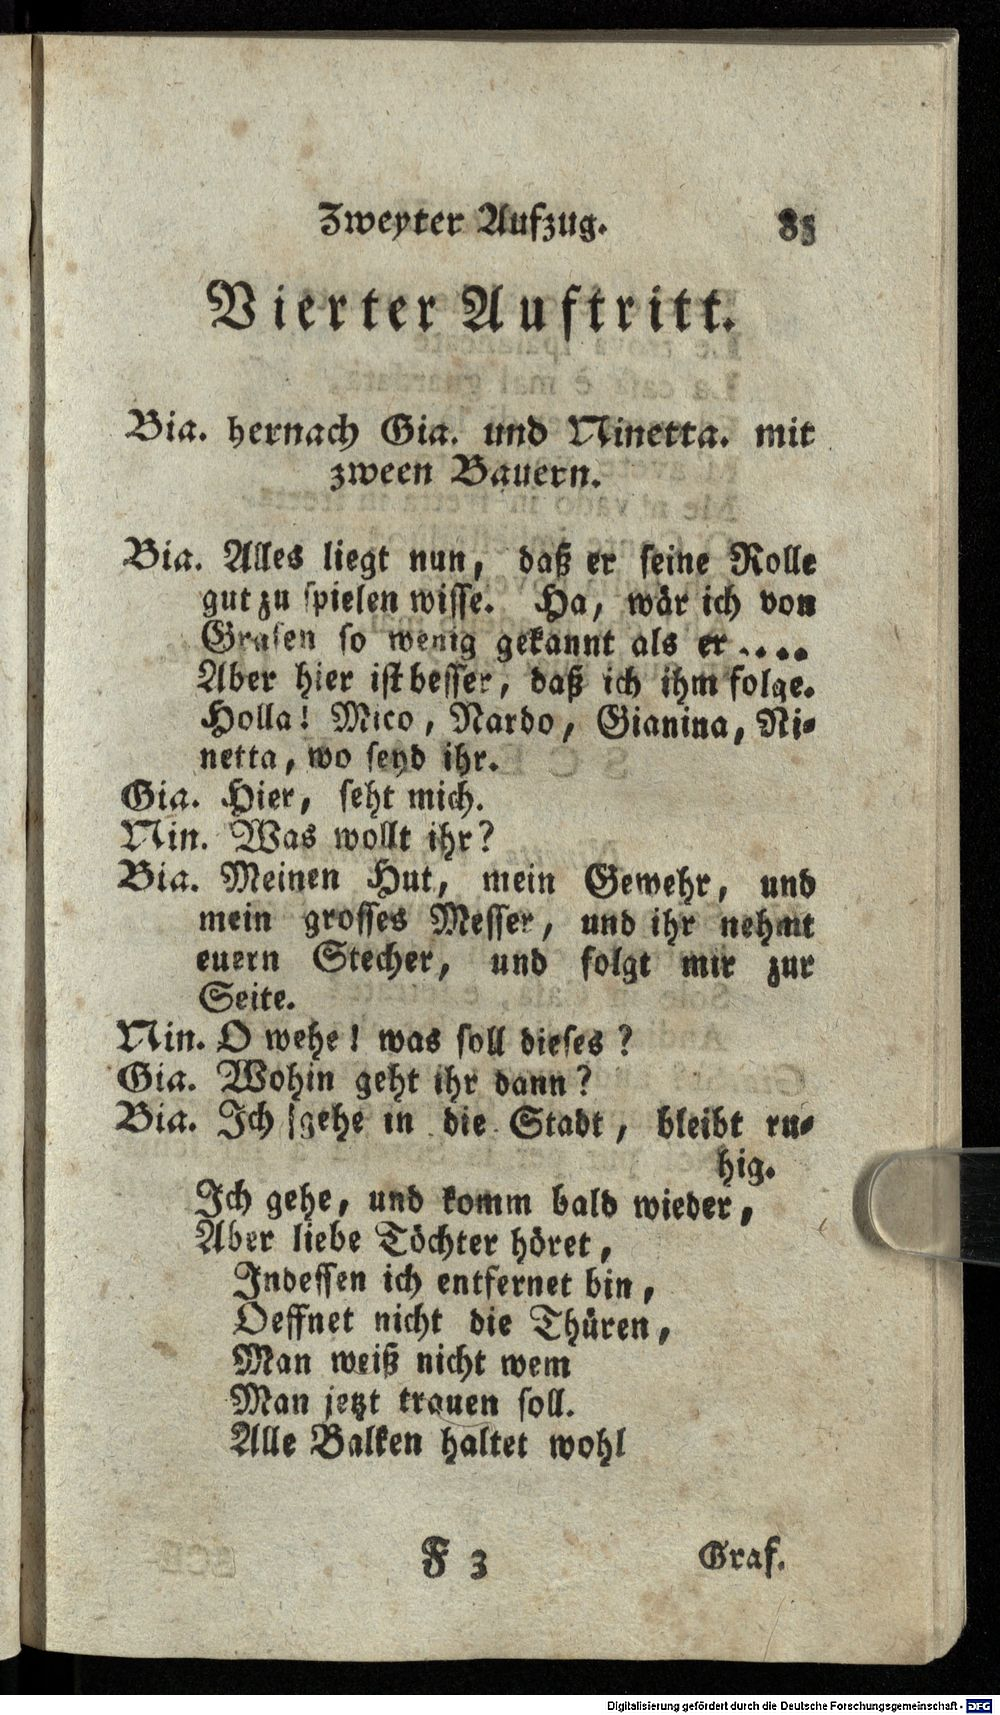 Zweyter Aufzug. 85
Vierter Auftritt.
Bia. hernach Gia. und Ninetta. mit
zween Bauern.
Bia. Alles liegt nun, daß er seine Rolle
gut zu spielen wisse. Ha, wär ich von
Grafen so wenig gekannt als er ....
Aber hier ist besser, daß ich ihm folge.
Holla! Mico, Nardo, Gianina, Ni-
netta, wo seyd ihr.
Gia. Hier, seht mich.
Nin. Was wollt ihr?
Bia. Meinen Hut, mein Gewehr, und
mein grosses Messer, und ihr nehmt
euern Stecher, und folgt mir zur
Seite.
Nin. O wehe! was soll dieses?
Gia. Wohin geht ihr dann?
Bia. Ich gehe in die Stadt, bleibt ru-
hig.
Ich gehe, und komm bald wieder,
Aber liebe Töchter höret,
Indessen ich entfernet bin,
Oeffnet nicht die Thüren,
Man weiß nicht wem
Man jetzt trauen soll.
Alle Balken haltet wohl
F 3 Graf.
Digitalisierung gefördert durch die Deutsche Forschungsgemeinschaft - DFG